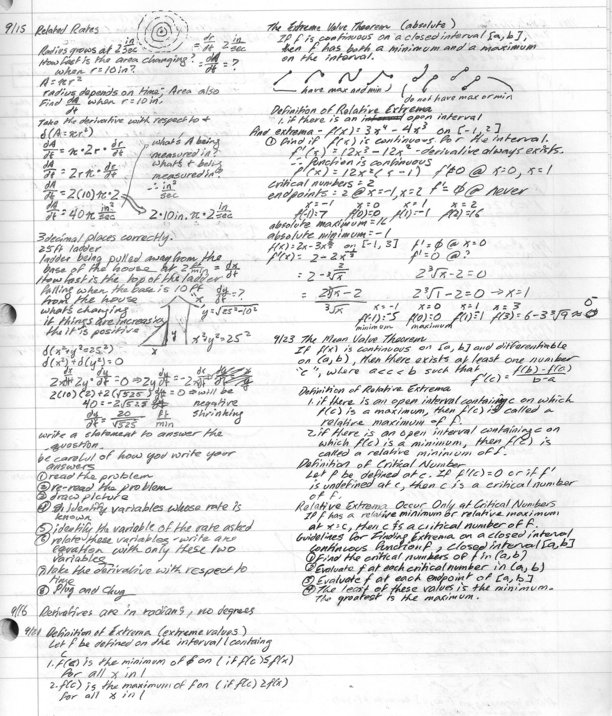 9/15 Related Rates
Radius grows at 2 in/sec = dr/dt 2 in/sec
How fast is the area changing? = dA/dt = ?
when r = 10 in?
A = πr²
radius depends on time; Area also
Find dA/dt when r = 10 in.
Take the derivative with respect to t
d(A = πr²)
dA/dt = π · 2r · dr/dt
what's A being
measured in?
dA/dt = 2rπ · dr/dt
what's t being
measured in?
dA/dt = 2(10)π · 2
∴ in²/sec
dA/dt = 40π in²/sec
2·10in. π · 2 in/sec
3 decimal places correctly.
25 ft ladder
ladder being pulled away from the
base of the house at 2 ft/min = dx/dt
How fast is the top of the ladder
falling when the base is 10 ft
from the house
dy/dt = ?
y = √25²-10²
whats changing
if things are increasing
the it is positive
x
y
x²+y² = 25²
d(x²+y² = 25²)
d(x²)+d(y²) = 0
2x dx/dt + 2y dy/dt = 0 ⇒ 2y dy/dt = -2x dx/dt
2(10)(2)+2(√525) dy/dt = 0 ⇒ will be
40 = -2√525 dy/dt
negative
dy/dt = 20/√525 ft/min
shrinking
write a statement to answer the
question.
be careful of how you write your
answers
① read the problem
② re-read the problem
③ draw picture
④ identify variables whose rate is
known
⑤ identify the variable of the rate asked
⑥ relate these variables - write an
equation with only these two
variables
⑦ take the derivative with respect to
time
⑧ Plug and Chug
9/16 Derivatives are in radians, no degrees
9/21 Definition of Extrema (extreme values)
Let f be defined on the interval I containg
c
1. f(c) is the minimum of f on I if f(c) ≤ f(x)
for all x in I
2. f(c) is the maximum of f on I if f(c) ≥ f(x)
for all x in I
The Extreme Value Theorem (absolute)
If f is continuous on a closed interval [a,b],
then f has both a minimum and a maximum
on the interval.
have max and min
do not have max or min
Definition of Relative Extrema
1. if there is an open interval
Find extrema - f(x) = 3x⁴ - 4x³ on [-1,2]
① Find if f(x) is continuous for the interval.
f'(x) = 12x³ - 12x² - derivative always exists.
∴ function is continuous
f'(x) = 12x²(x-1) f' = 0 @ x=0, x=1
critical numbers = 2
endpoints = 2 @ x=-1, x=2 f' = ∅ @ never
x=-1 x=0 x=1 x=2
f(-1)=7 f(0)=0 f(1)=-1 f(2)=16
absolute maximum = 16
absolute minimum = -1
f(x) = 2x-3x^⅔ on [-1,3] f' = ∅ @ x=0
f'(x) = 2-2x^-⅓ f' = 0 @ ?
= 2 - 2/∛x 2∛x - 2 = 0
= (2∛x - 2)/∛x 2∛1 - 2 = 0 → x = 1
x=-1 x=0 x=1 x=3
f(-1)=-5 f(0)=0 f(1)=-1 f(3)=6-3∛9 ≈
minimum maximum
9/23 The Mean Value Theorem
If f(x) is continuous on [a,b] and differentiable
on (a,b), then there exists at least one number
"c", where a<c<b such that
f'(c) = (f(b)-f(a))/(b-a)
Definition of Relative Extrema
1. if there is an open interval containing c on which
f(c) is a maximum, then f(c) is called a
relative maximum of f.
2. if there is an open interval containing c on
which f(c) is a minimum, then f(c) is
called a relative minimum of f.
Definition of Critical Number
Let f be defined at c. If f'(c)=0 or if f'
is undefined at c, then c is a critical number
of f.
Relative Extrema Occur Only at Critical Numbers
If f has a relative minimum or relative maximum
at x=c, then c is a critical number of f.
Guidelines for Finding Extrema on a closed interval
continuous function f, closed interval [a,b]
① Find the critical numbers of f in (a,b)
② Evaluate f at each critical number in (a,b)
③ Evaluate f at each endpoint of [a,b]
④ The least of these values is the minimum.
The greatest is the maximum.